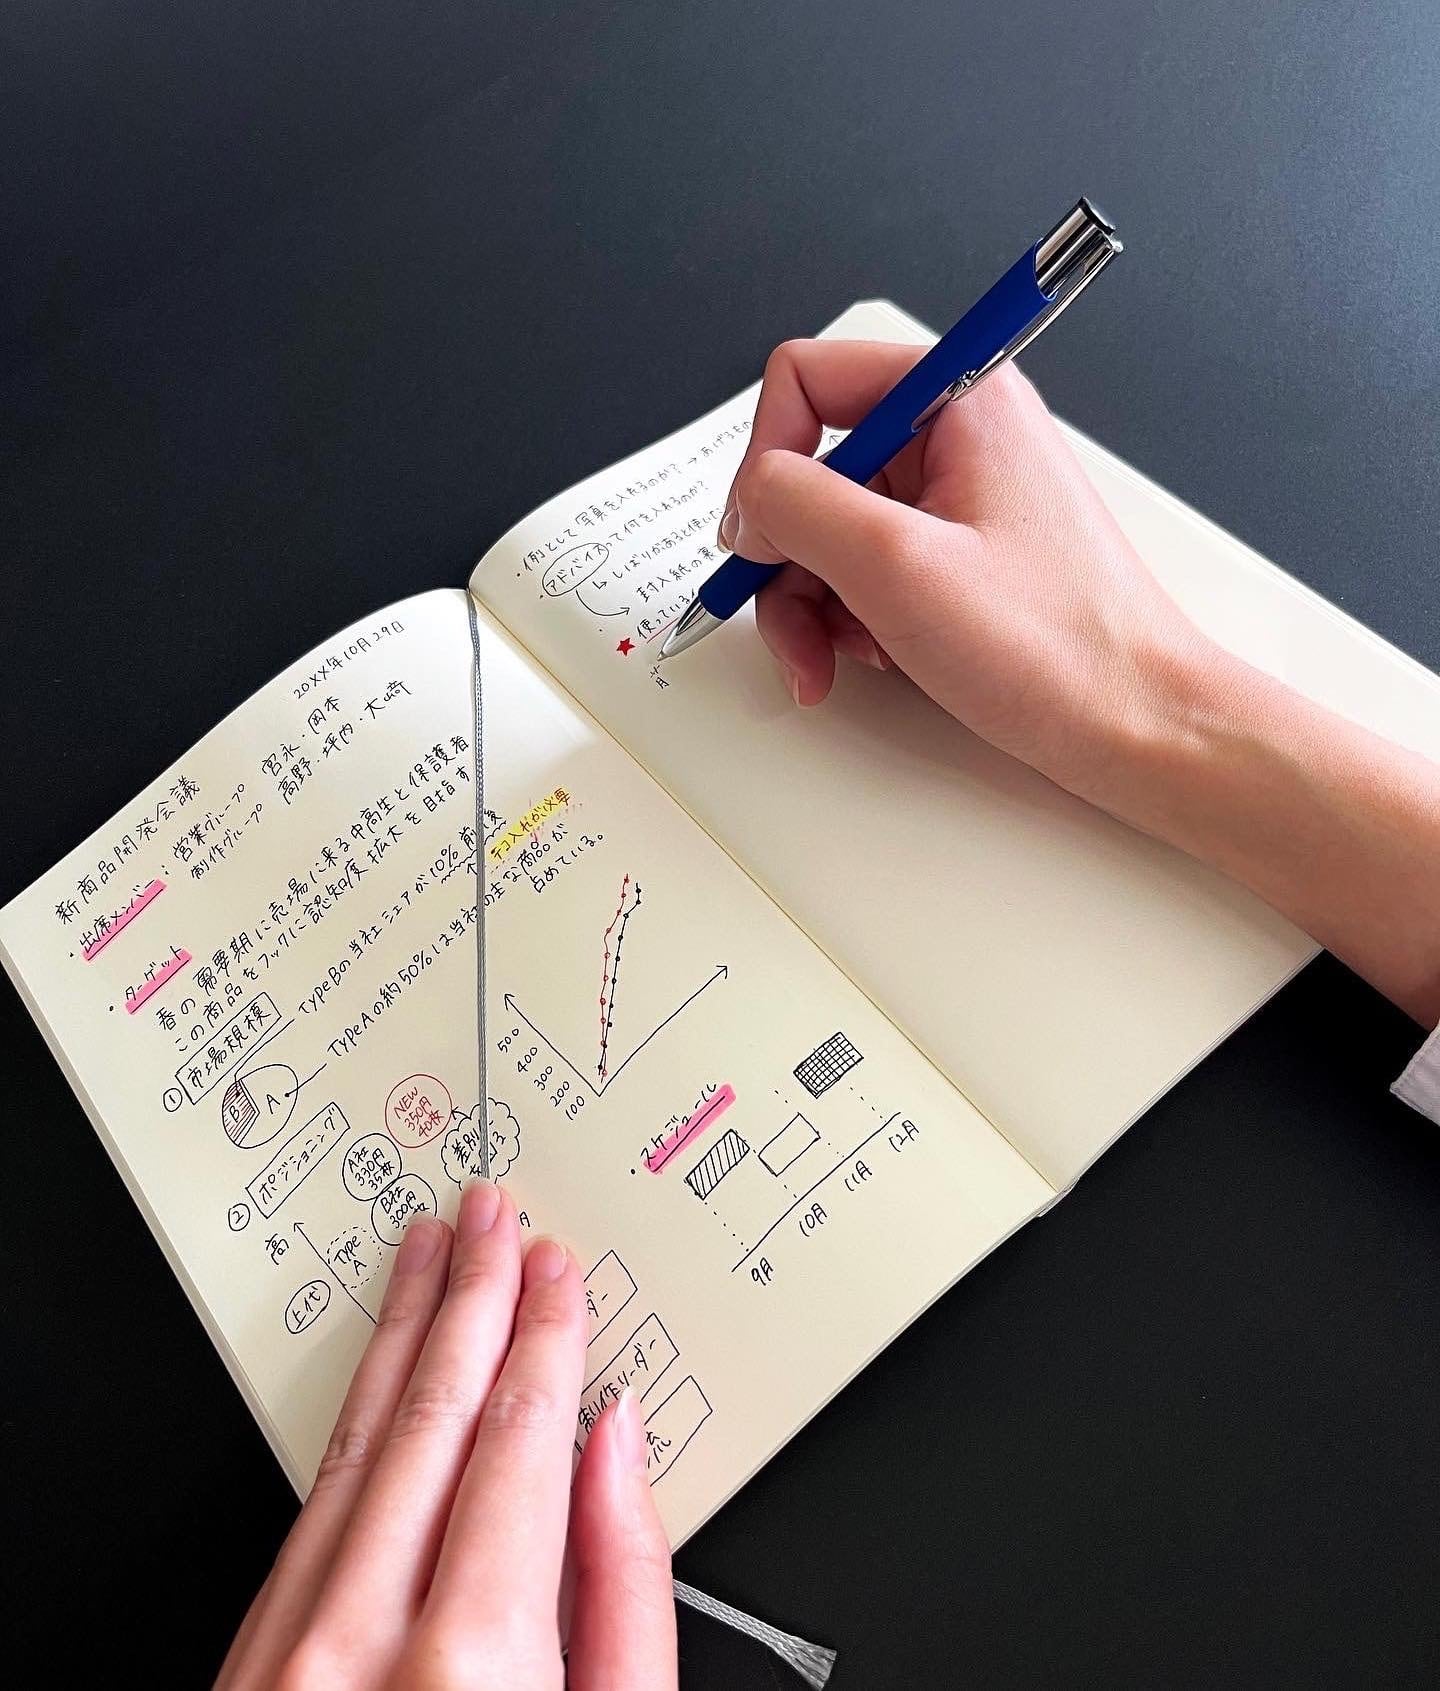 20XX年10月29日
新商品開発会議
・出席メンバー：営業グループ 宮永・岡本
制作グループ 高野・坪内・大崎
・ターゲット
春の需要期に売場に来る中高生と保護者
この商品をフックに認知度拡大を目指す
① 市場規模
TypeBの当社シェアが10%前後
↑テコ入れが必要
TypeAの約50%は当社の主な商品が
占めている。
B
A
② ポジショニング
NEW
350円
40枚
A社
330円
35枚
B社
300円
枚
差別化
高
Type
A
上代
500
400
300
200
100
・スケジュール
9月
10月
11月
12月
ダー
制作リーダー
・例として写真を入れるのか？→あげるもの
・アドバイスって何を入れるのか？
↳しばりがあると使いに
封入紙の裏
★使っている